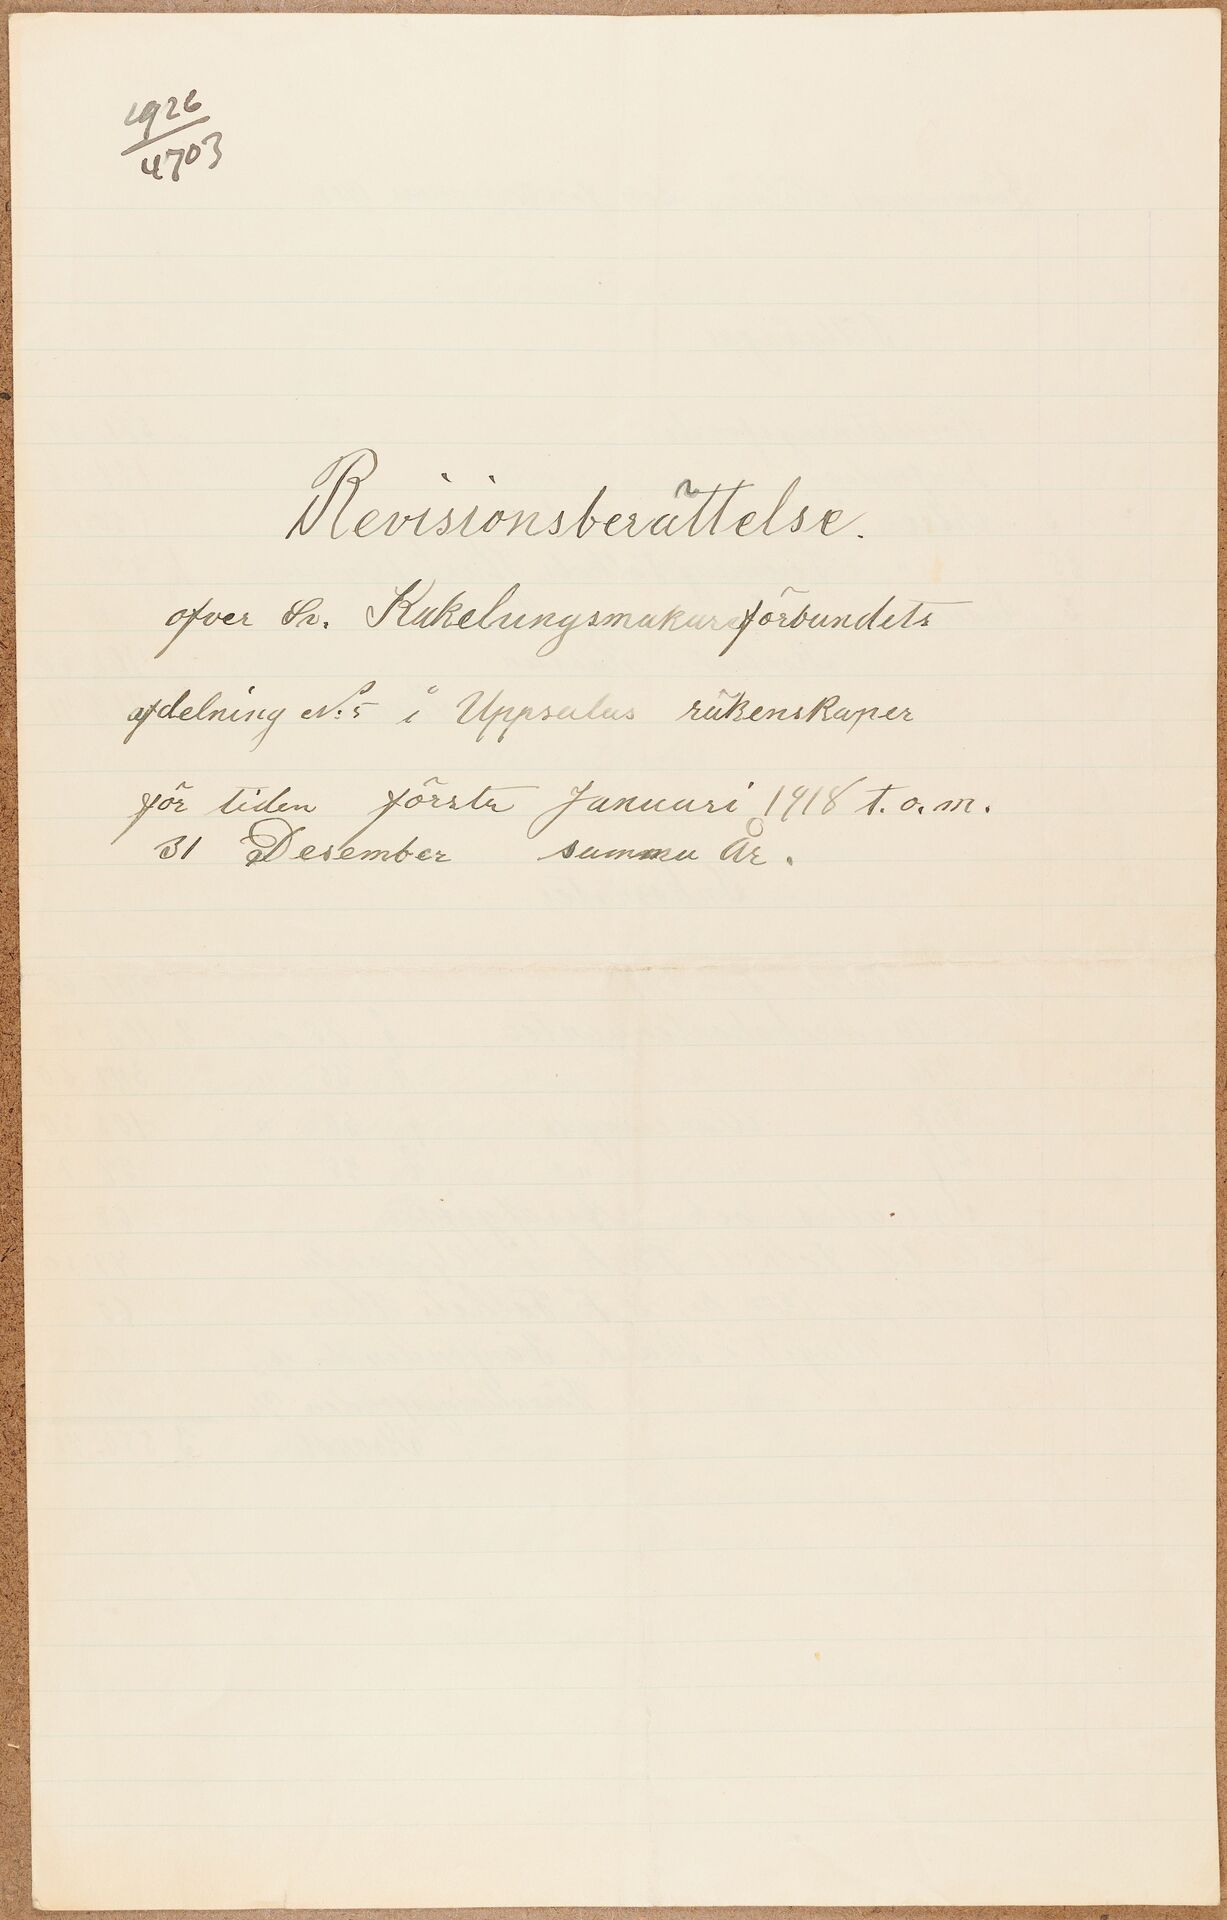 1926
4703
Revisionsberättelse.
öfver Sv. Kakelungsmakareförbundets
afdelning No:5 i Uppsalas räkenskaper
för tiden första Januari 1918 t.o.m.
31 Desember samma År.